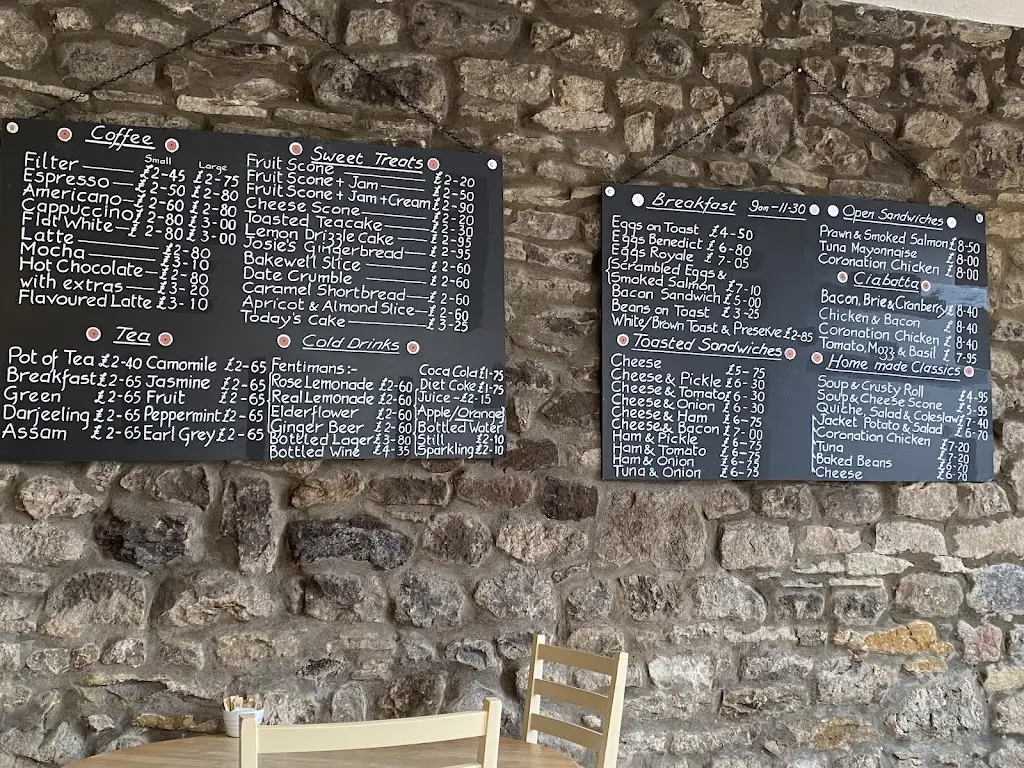 Coffee
Small Large
Filter £2-45 £2-75
Espresso £2-50 £2-80
Americano £2-60 £2-80
Cappuccino £2-80 £3-00
Flat White £2-80 £3-00
Latte
Mocha
Hot Chocolate
with extras
Flavoured Latte £3-10
Sweet Treats
Fruit Scone £2-20
Fruit Scone + Jam
Fruit Scone + Jam + Cream
Cheese Scone
Toasted Teacake
Lemon Drizzle Cake
Josie's Gingerbread
Bakewell Slice £2-60
Date Crumble
Caramel Shortbread £2-60
Apricot & Almond Slice £2-60
Today's Cake £3-25
Tea
Pot of Tea £2-40 Camomile £2-65
Breakfast £2-65 Jasmine £2-65
Green £2-65 Fruit £2-65
Darjeeling £2-65 Peppermint £2-65
Assam £2-65 Earl Grey £2-65
Cold Drinks
Fentimans:-
Rose Lemonade £2-60
Real Lemonade £2-60
Elderflower £2-60
Ginger Beer £2-60
Bottled Lager £3-80
Bottled Wine £4-35
Coca Cola £1-75
Diet Coke £1-75
Juice - £2-15
Apple/Orange
Bottled Water
Still £2-10
Sparkling £2-10
Breakfast 9am-11-30
Eggs on Toast £4-50
Eggs Benedict £6-80
Eggs Royale £7-05
Scrambled Eggs &
Smoked Salmon £7-10
Bacon Sandwich £5-00
Beans on Toast £3-25
White/Brown Toast & Preserve £2-85
Toasted Sandwiches
Cheese £5-75
Cheese & Pickle £6-30
Cheese & Tomato £6-30
Cheese & Onion £6-30
Cheese & Ham £6-75
Cheese & Bacon £7-00
Ham & Pickle £6-75
Ham & Tomato £6-75
Ham & Onion £6-75
Tuna & Onion £6-75
Open Sandwiches
Prawn & Smoked Salmon £8-50
Tuna Mayonnaise £8-00
Coronation Chicken £8-00
Ciabatta
Bacon, Brie & Cranberry £8-40
Chicken & Bacon £8-40
Coronation Chicken £8-40
Tomato, Mozz & Basil £7-95
Home made Classics
Soup & Crusty Roll £4-95
Soup & Cheese Scone £5-95
Quiche, Salad & Coleslaw £7-40
Jacket Potato & Salad £6-70
Coronation Chicken £7-20
Tuna £7-20
Baked Beans £6-70
Cheese £6-70